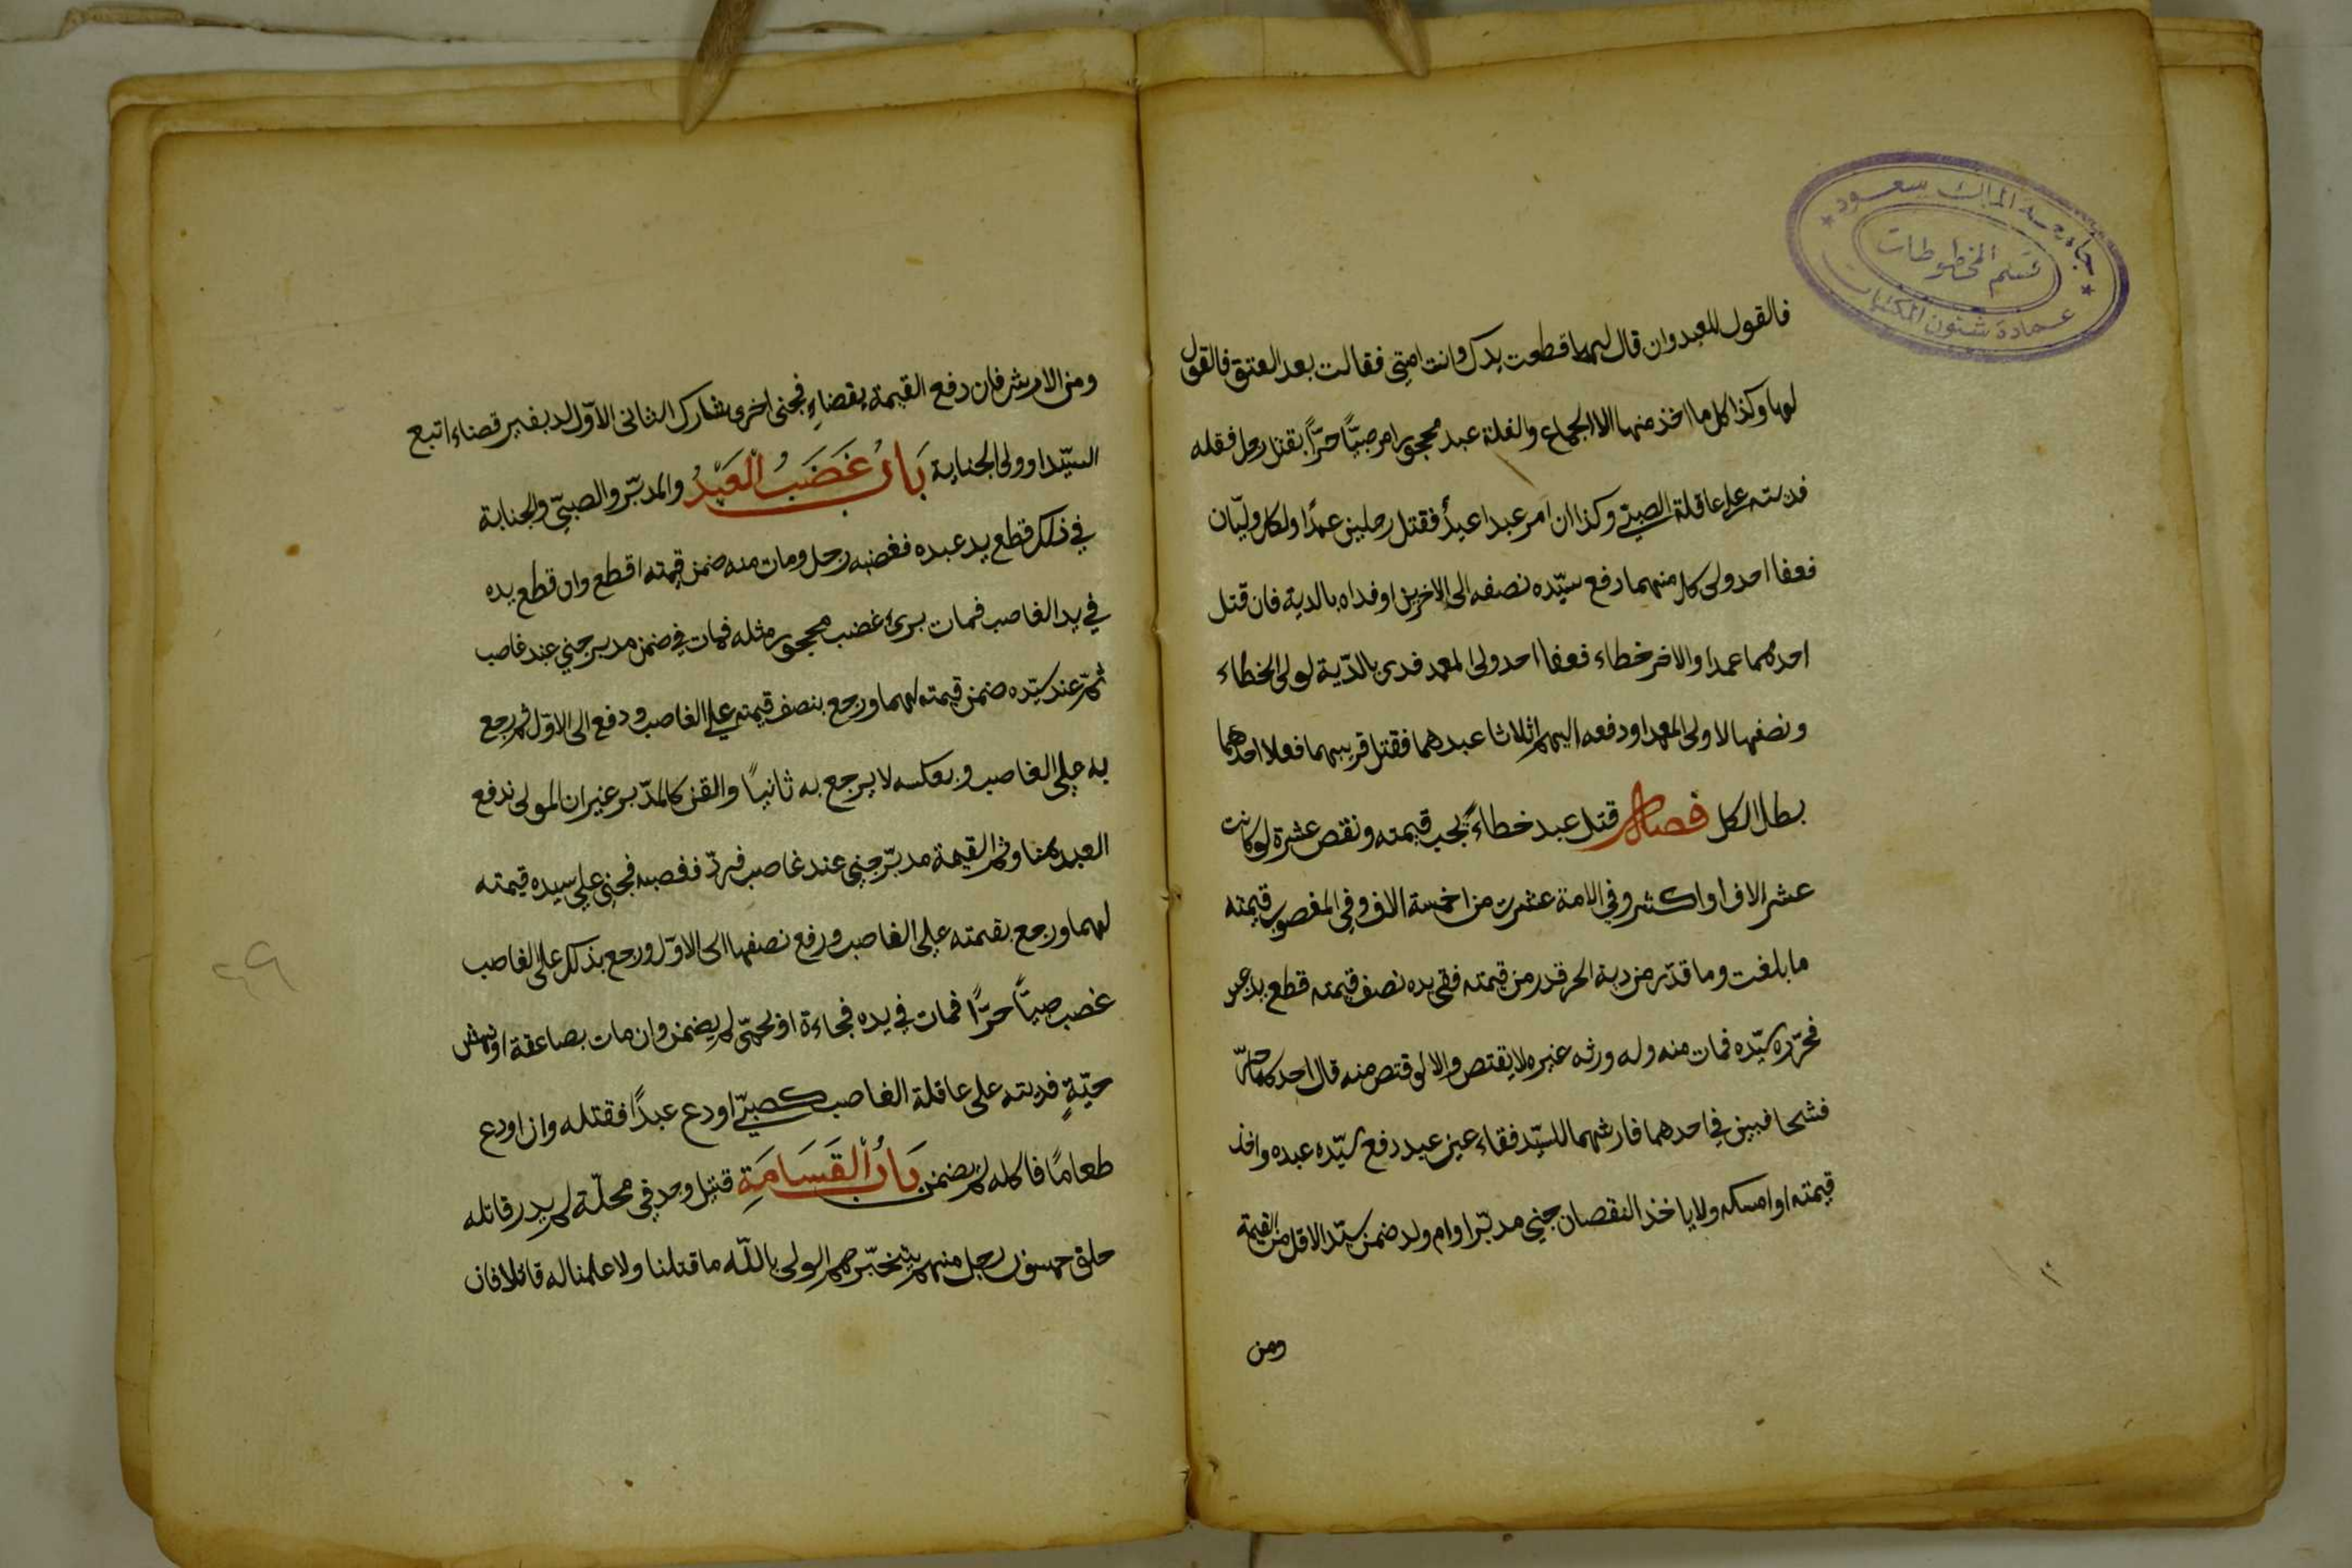 جامعة الملك سعود
قسم المخطوطات
عمادة شئون المكتبات
فالقول للعبد وان قال لها قطعت يدك وانت امتي فقالت بعد العتق فالقول
لها وكذا كل ما اخذ منها الا الجماع والغلة عبد محجور امر صبيًّا حرًّا بقتل رجل فقتله
فديته على عاقلة الصبي وكذا ان امر عبدا عبدٌ فقتل رجلين عمدًا ولكل وليّان
فعفا احد ولى كل منهما دفع سيّده نصفه الى الاخرين او فداه بالدية فان قتل
احدهما عمدا والاخر خطاء فعفا احد ولى العمد فدى بالدّية لولى الخطاء
ونصفها لاولى العمد او دفعه اليهم اثلاثا عبدهما فقتل قريبهما فعفا احدهما
بطل الكل فصل قتل عبد خطاءً يجب قيمته ونقص عشرة لو كانت
عشر الاف او اكثر وفي الامة عشرت من اخمسة الاف وفي المغصوب قيمته
ما بلغت وما قدّر من دية الحر قدر من قيمته ففي يده نصف قيمته قطع يد عبد
فحرّره سيّده فمات منه وله ورثه غيره لا يقتص والا لوقتص منه قال احدكما حرّ
فشجا فبين في احدهما فارشهما للسيّد فقاء عين عبد دفع سيّده عبده واخذ
قيمته او امسكه ولا ياخذ النقصان جني مدبّر او ام ولد ضمن سيّد الاقل من القيمة
ومن
ومن الارش فان دفع القيمة بقضاءٍ فجنى اخرى شارك الثانى الاوّل لد بغير قضاء اتبع
السيّد او ولى الجناية بَابُ غَصَبُ الْعَبْدُ والمدبّر والصبيّ والجناية
في ذلك قطع يد عبده فغصبه رجل ومات منه ضمن قيمته اقطع وان قطع يده
في يد الغاصب فمات برئ غصب محجور مثله فمات في ضمن مدبر جني عند غاصب
ثمّ عند سيّده ضمن قيمته لهما ورجع بنصف قيمته على الغاصب ودفع الى الاوّل ثم رجع
به على الغاصب وبعكسه لا يرجع به ثانيًا والقن كالمدّبر غير ان المولى ندفع
العبد هنا وثم القيمة مدبّر جني عند غاصب فردّ فغصبه فجني على سيده قيمته
لهما ورجع بقيمته على الغاصب ورفع نصفها الى الاوّل ورجع بذلك على الغاصب
غصب صبيًّا حرًّا فمات في يده فجاءة او بحمّى لم يضمن وان مات بصاعقة او نهش
حيّةٍ فديته على عاقلة الغاصب كصبيّ اودع عبدًا فقتله وان اودع
طعامًا فاكله لم يضمن بَابُ الْقَسَامَةِ قتيل وجد في محلّة لم يدر قاتله
حلف خمسون رجل منهم يتخيّرهم الولى باللّه ما قتلنا ولا علمنا له قاتلا فان